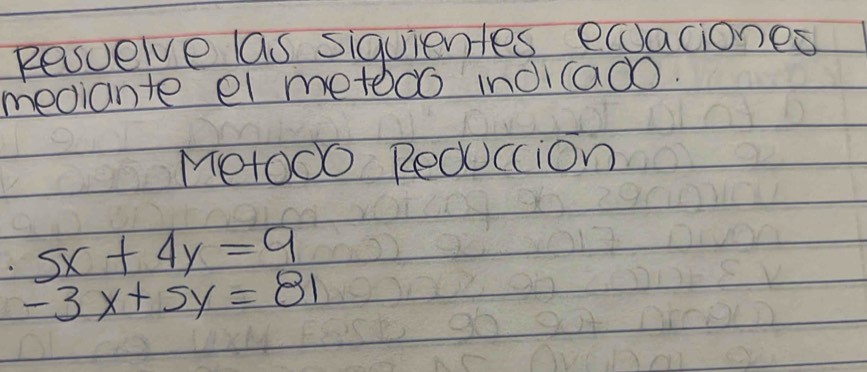 Resuelve las siguientes ecuaciones
mediante el metodo indicado.
Metodo Reducción
. 5x + 4y = 9
-3x + 5y = 81